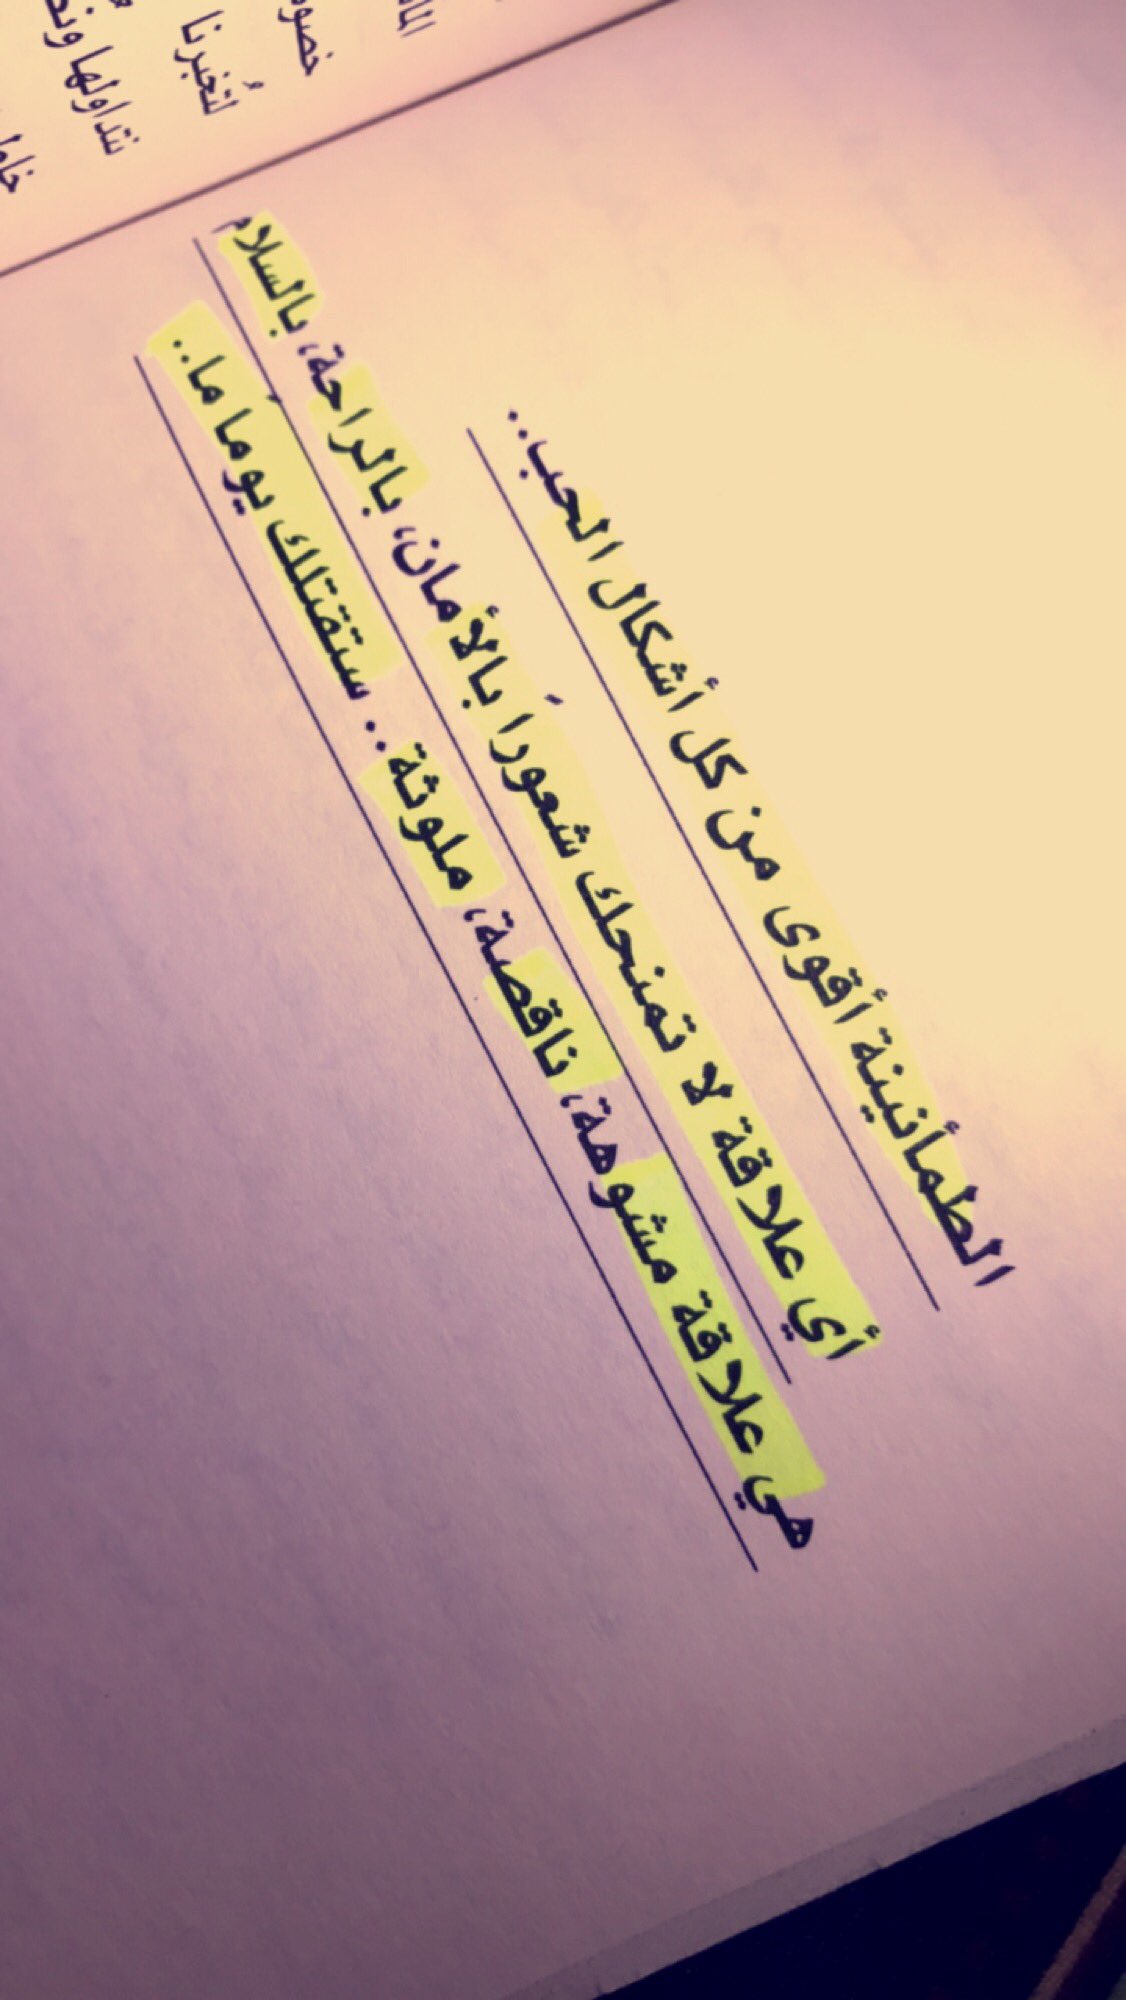 الطمأنينة أقوى من كل أشكال الحب..
أي علاقة لا تمنحك شعورًا بالأمان، بالراحة، بالسلام
هي علاقة مشوهة، ناقصة، ملوثة.. ستقتلك يومًا ما..
لتُخبرنا